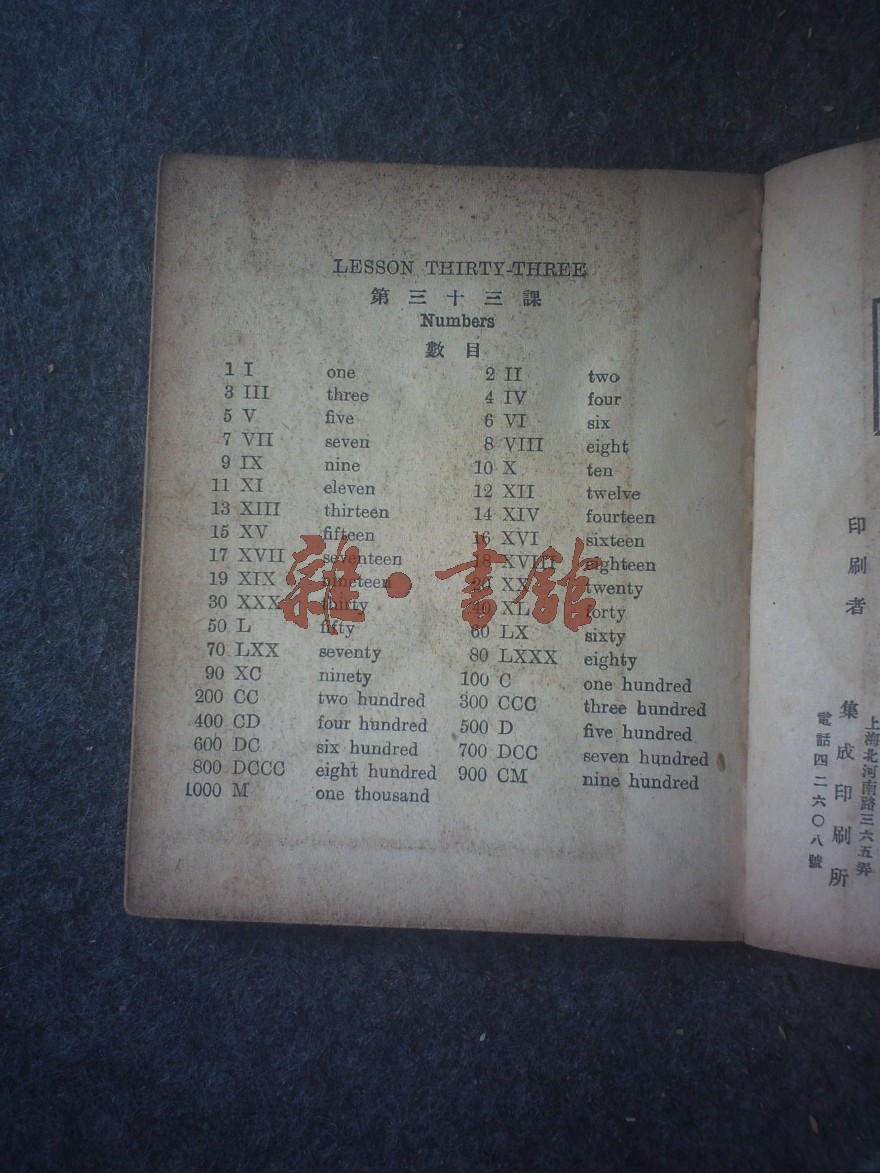 LESSON THIRTY-THREE
第三十三課
Numbers
數目
1 I one 2 II two
3 III three 4 IV four
5 V five 6 VI six
7 VII seven 8 VIII eight
9 IX nine 10 X ten
11 XI eleven 12 XII twelve
13 XIII thirteen 14 XIV fourteen
15 XV fifteen 16 XVI sixteen
17 XVII seventeen 18 XVIII eighteen
19 XIX nineteen 20 XX twenty
30 XXX thirty 40 XL forty
50 L fifty 60 LX sixty
70 LXX seventy 80 LXXX eighty
90 XC ninety 100 C one hundred
200 CC two hundred 300 CCC three hundred
400 CD four hundred 500 D five hundred
600 DC six hundred 700 DCC seven hundred
800 DCCC eight hundred 900 CM nine hundred
1000 M one thousand
雜·書館
上海北河南路三六五弄
印刷者 集成印刷所
電話四二六〇八號